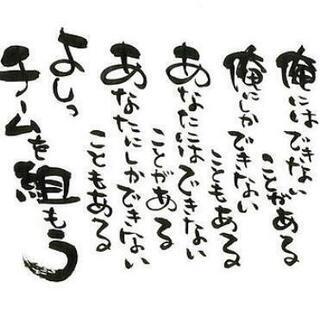 俺にはできない
ことがある
俺にしかできない
こともある
あなたにはできない
ことがある
あなたにしかできない
こともある
よしっ
チームを組もう